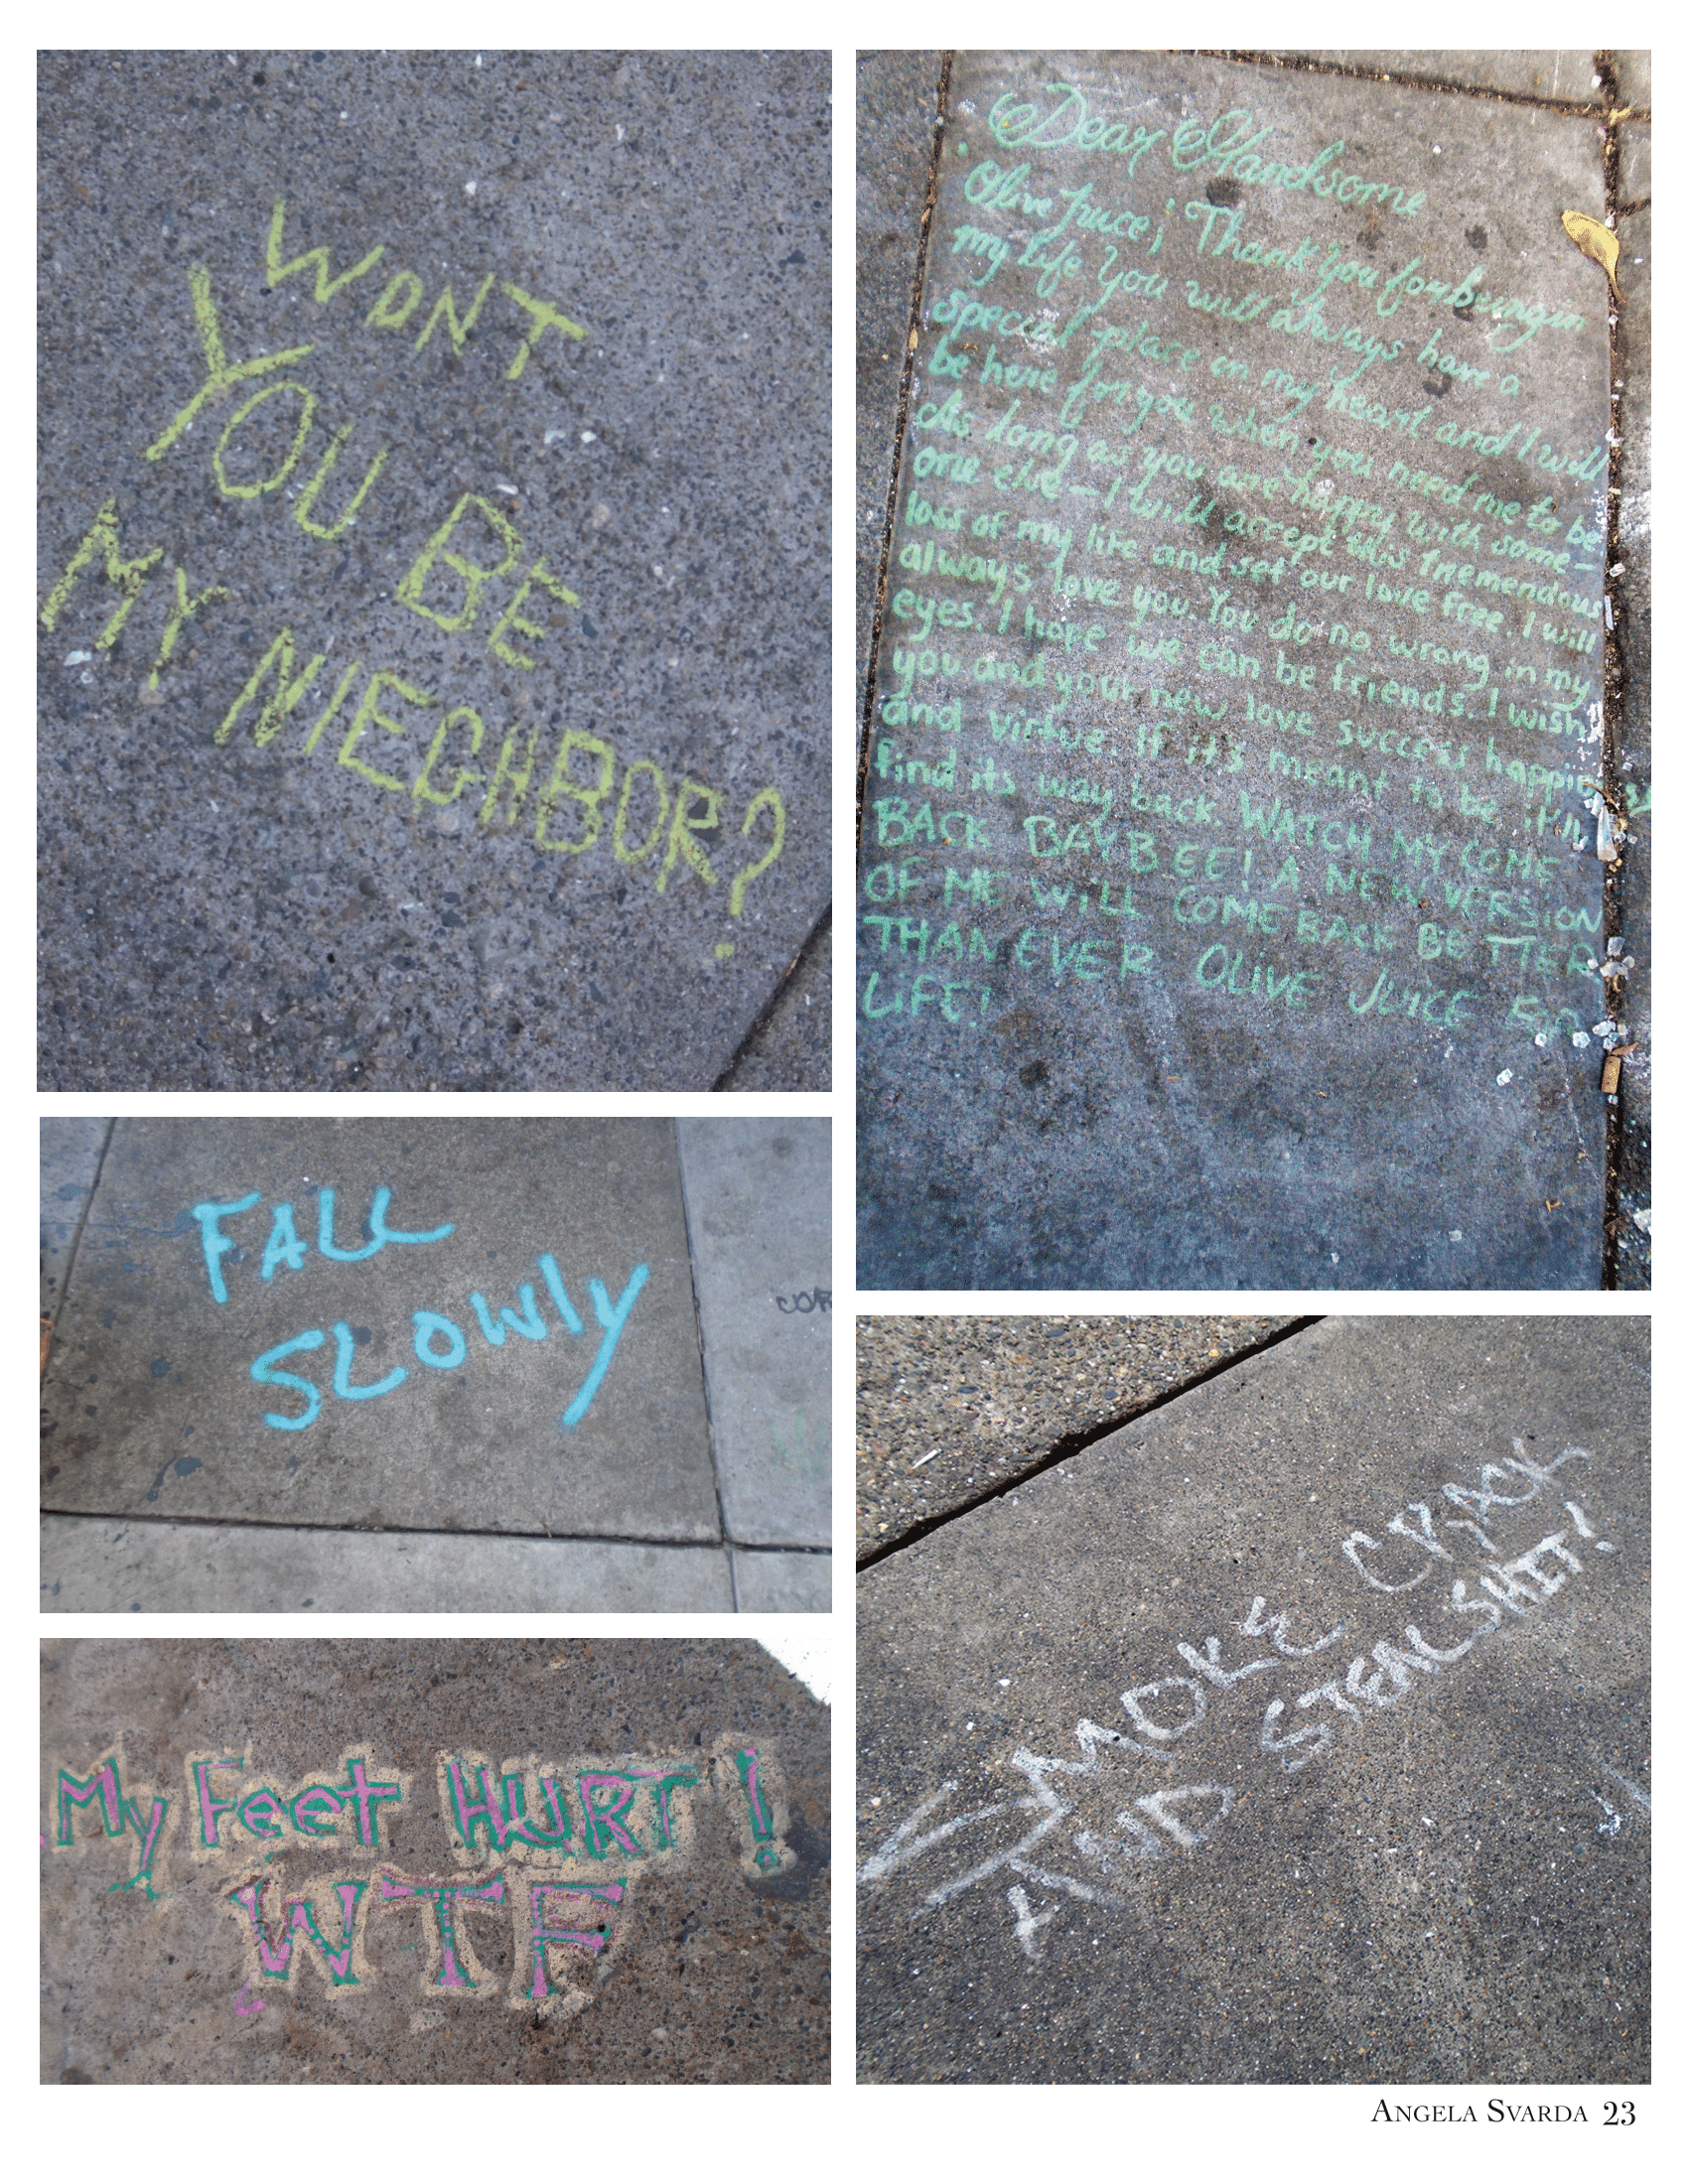 WONT
YOU BE
MY NIEGHBOR?
Dear Handsome
Olive Juice; Thank you for being in
my life you will always have a
special place in my heart and I will
be here for you when you need me to be
As long as you are happy with some-
one else - I will accept this tremendous
loss of my life and set our love free. I will
always love you. You do no wrong in my
eyes. I hope we can be friends. I wish
you and your new love success happi
and virtue. If it's meant to be it'll
find its way back. WATCH MY COME
BACK BAYBEE! A NEW VERSION
OF ME WILL COME BACK BETTER
THAN EVER. OLIVE JUICE
LIFE!
FALL
SLOWLY
COR
SMOKE CRACK
AND STEAL SHIT!
My Feet HURT!
WTF
ANGELA SVARDA 23